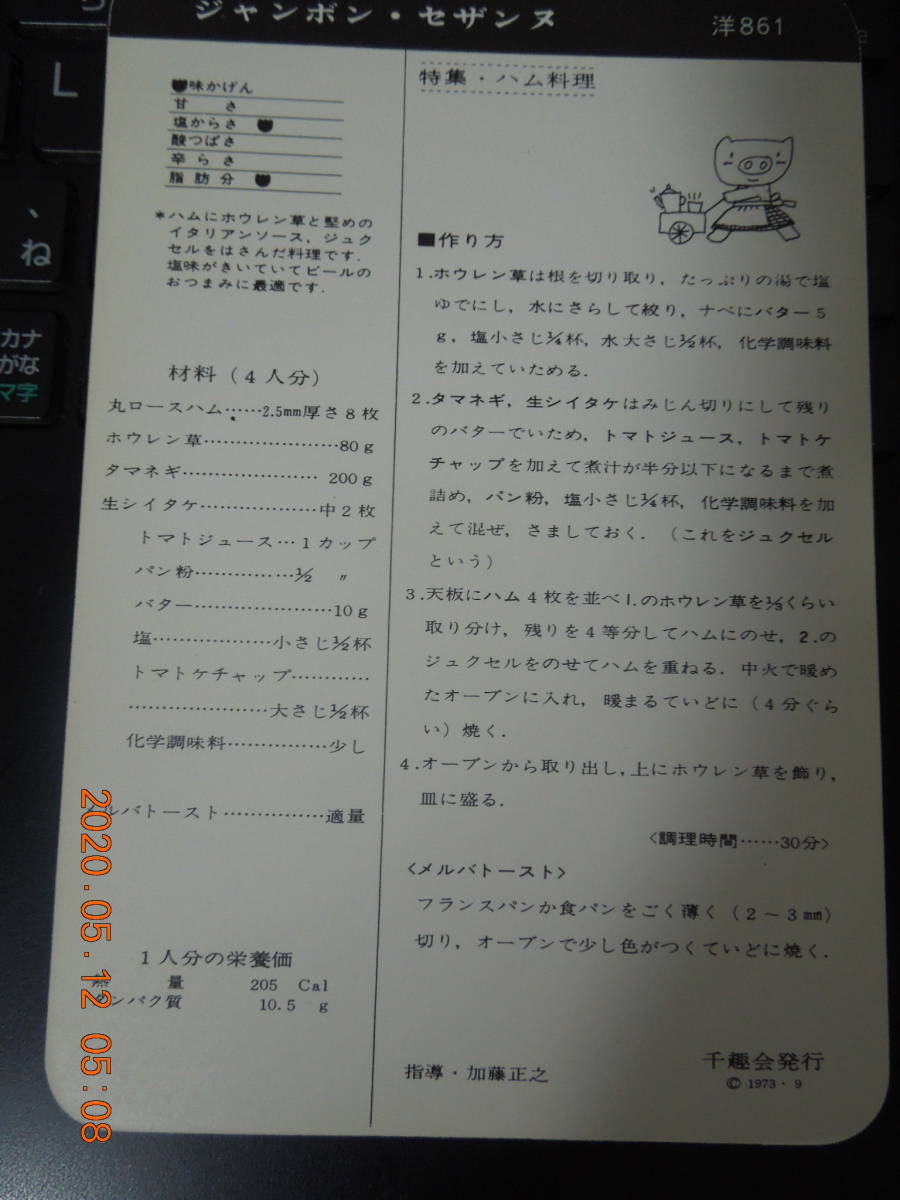 ジャンボン・セザンヌ
洋861
味かげん
甘さ
塩からさ
酸つぱさ
辛らさ
脂肪分
*ハムにホウレン草と堅めの
イタリアンソース,ジュク
セルをはさんだ料理です.
塩味がきいていてビールの
おつまみに最適です.
材料(4人分)
丸ロースハム……2.5mm厚さ8枚
ホウレン草…………………80g
タマネギ……………… 200g
生シイタケ………………中2枚
トマトジュース…1カップ
パン粉……………½ 〃
バター…………………10g
塩………………小さじ½杯
トマトケチャップ…………
…………………大さじ½杯
化学調味料……………少し
メルバトースト……………適量
1人分の栄養価
熱量 205 Cal
タンパク質 10.5 g
特集・ハム料理
■作り方
1.ホウレン草は根を切り取り,たっぷりの湯で塩
ゆでにし,水にさらして絞り,ナベにバター5
g,塩小さじ¼杯,水大さじ½杯,化学調味料
を加えていためる.
2.タマネギ,生シイタケはみじん切りにして残り
のバターでいため,トマトジュース,トマトケ
チャップを加えて煮汁が半分以下になるまで煮
詰め,パン粉,塩小さじ¼杯,化学調味料を加
えて混ぜ,さましておく.(これをジュクセル
という)
3.天板にハム4枚を並べ1.のホウレン草を⅓くらい
取り分け,残りを4等分してハムにのせ,2.の
ジュクセルをのせてハムを重ねる.中火で暖め
たオーブンに入れ,暖まるていどに(4分ぐら
い)焼く.
4.オーブンから取り出し,上にホウレン草を飾り,
皿に盛る.
<調理時間……30分>
<メルバトースト>
フランスパンか食パンをごく薄く(2～3㎜)
切り,オーブンで少し色がつくていどに焼く.
指導・加藤正之
千趣会発行
© 1973・9
L
、
ね
カナ
がな
マ字
2020.05.12 05:08